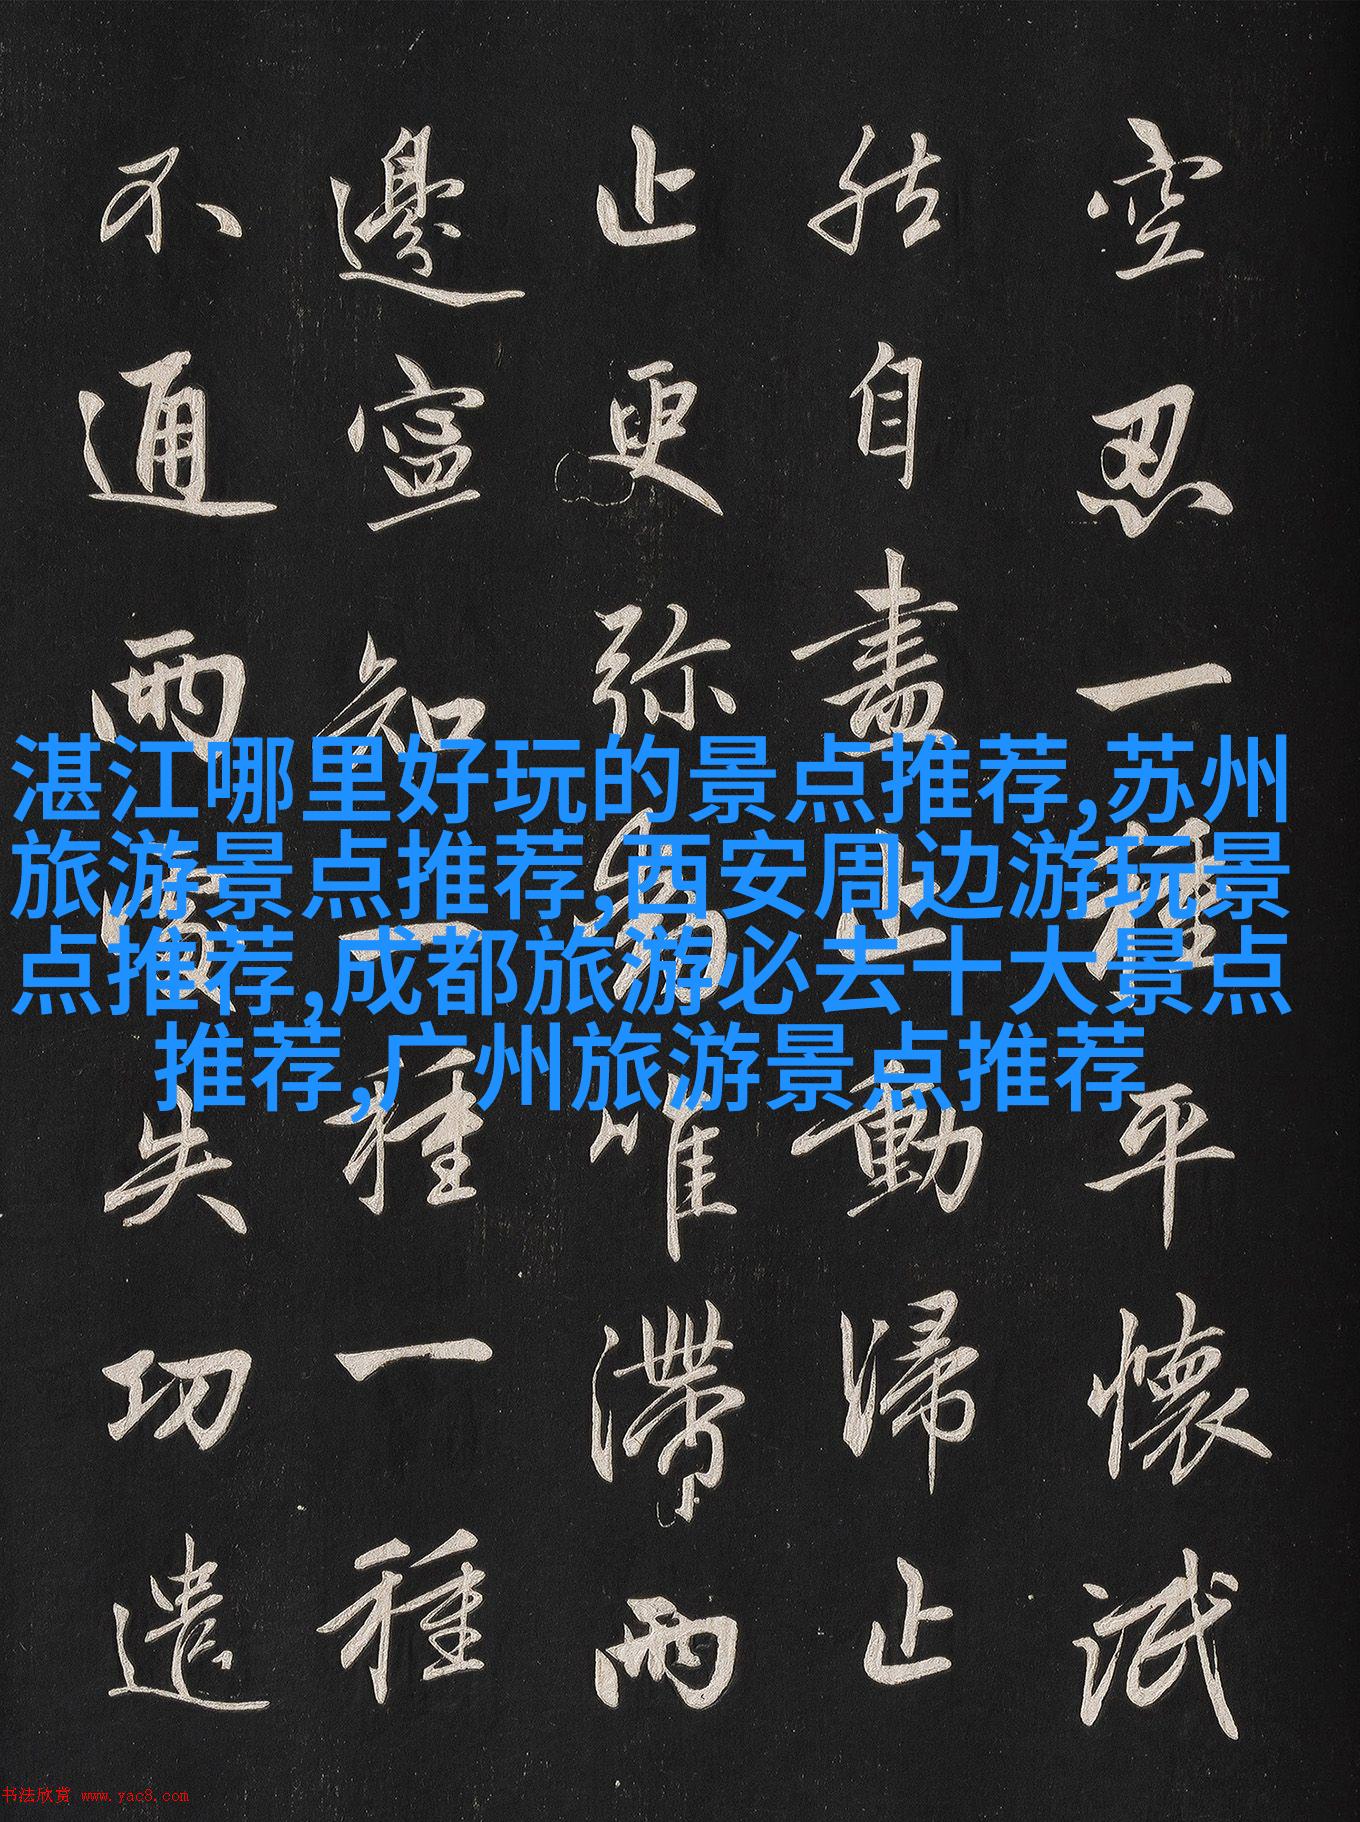 空忍一種平懷泯
然自盡止動歸止
止更弥唯滯兩
邊寧知一種一種
不通兩處失功遣
湛江哪里好玩的景点推荐,苏州
旅游景点推荐,西安周边游玩景
点推荐,成都旅游必去十大景点
推荐,广州旅游景点推荐
书法欣赏 www.yac8.com